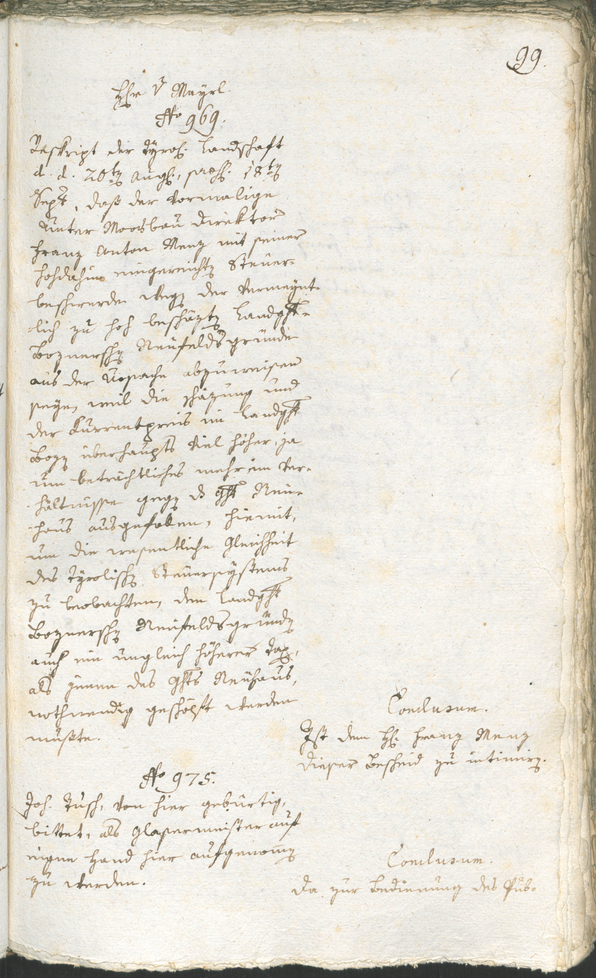 99.
Hr. v Mayrl.
No 969.
Reskript der tyrol. Landschaft
d. d. 20ten Aug., praes. 18ten
Sept., daß der vormalige
Unter Moosbau Direktor
Franz Anton Menz mit seiner
eingereichten Steuer-
beschwerde wegen der vermeint-
lich zu hoch beschäzten Landght-
Boznerschen Neufeldsgründe
aus der Ursache abzuweisen
seyen, weil die Schäzung und
der Kurrentpreis im Landght
Bozen überhaupts viel höher, ja
um beträchtliches mehr im Ver-
hältnisse gegen d. Ght Neu-
haus ausgefallen, hiemit,
um die wesentliche Gleichheit
des tyrolischen Steuersystems
zu beobachten, dem Landght
Boznerschen Neufeldsgründen
auch ein ungleich höherer Tax,
als jenen des Ghts Neuhaus,
nothwendig geschöpft werden
mußte.
Conclusum.
Ist dem H. Franz Menz
dieser Bescheid zu intimiren.
No 975.
Joh. Tusch, von hier gebürtig,
bittet, als Glasermeister auf
eigne Hand hier aufgenomen
zu werden.
Conclusum.
Da zur Bedienung des Pub-